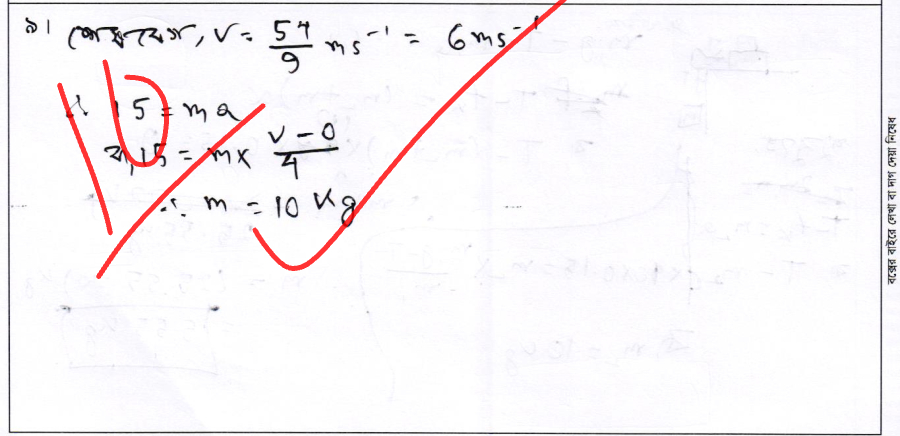 ৯। শেষবেগ, v = 54/9 ms⁻¹ = 6 ms⁻¹
∴ 15 = ma
বা, 15 = m × (v - 0)/4
∴ m = 10 Kg
বক্সের বাইরে লেখা বা দাগ দেয়া নিষেধ